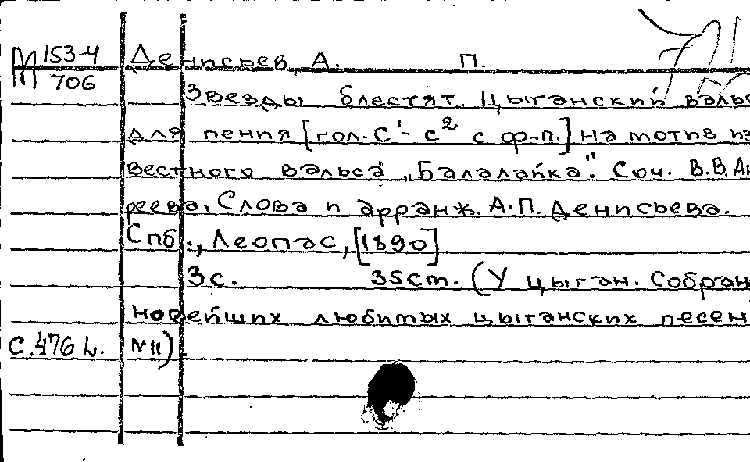 М 153-4
706
Денисьев, А. П.
Звезды блестят. Цыганский валь
для пения [гол. с¹- с² с ф.-п.] на мотив из
вестного вальса „Балалайка". Соч. В.В. Ан
реева. Слова и арранж. А.П. Денисьева.
Спб., Леопас, [1890]
3с. 35cm. (У цыган. Собран
новейших любимых цыганских песен
№11).
С.476 L.